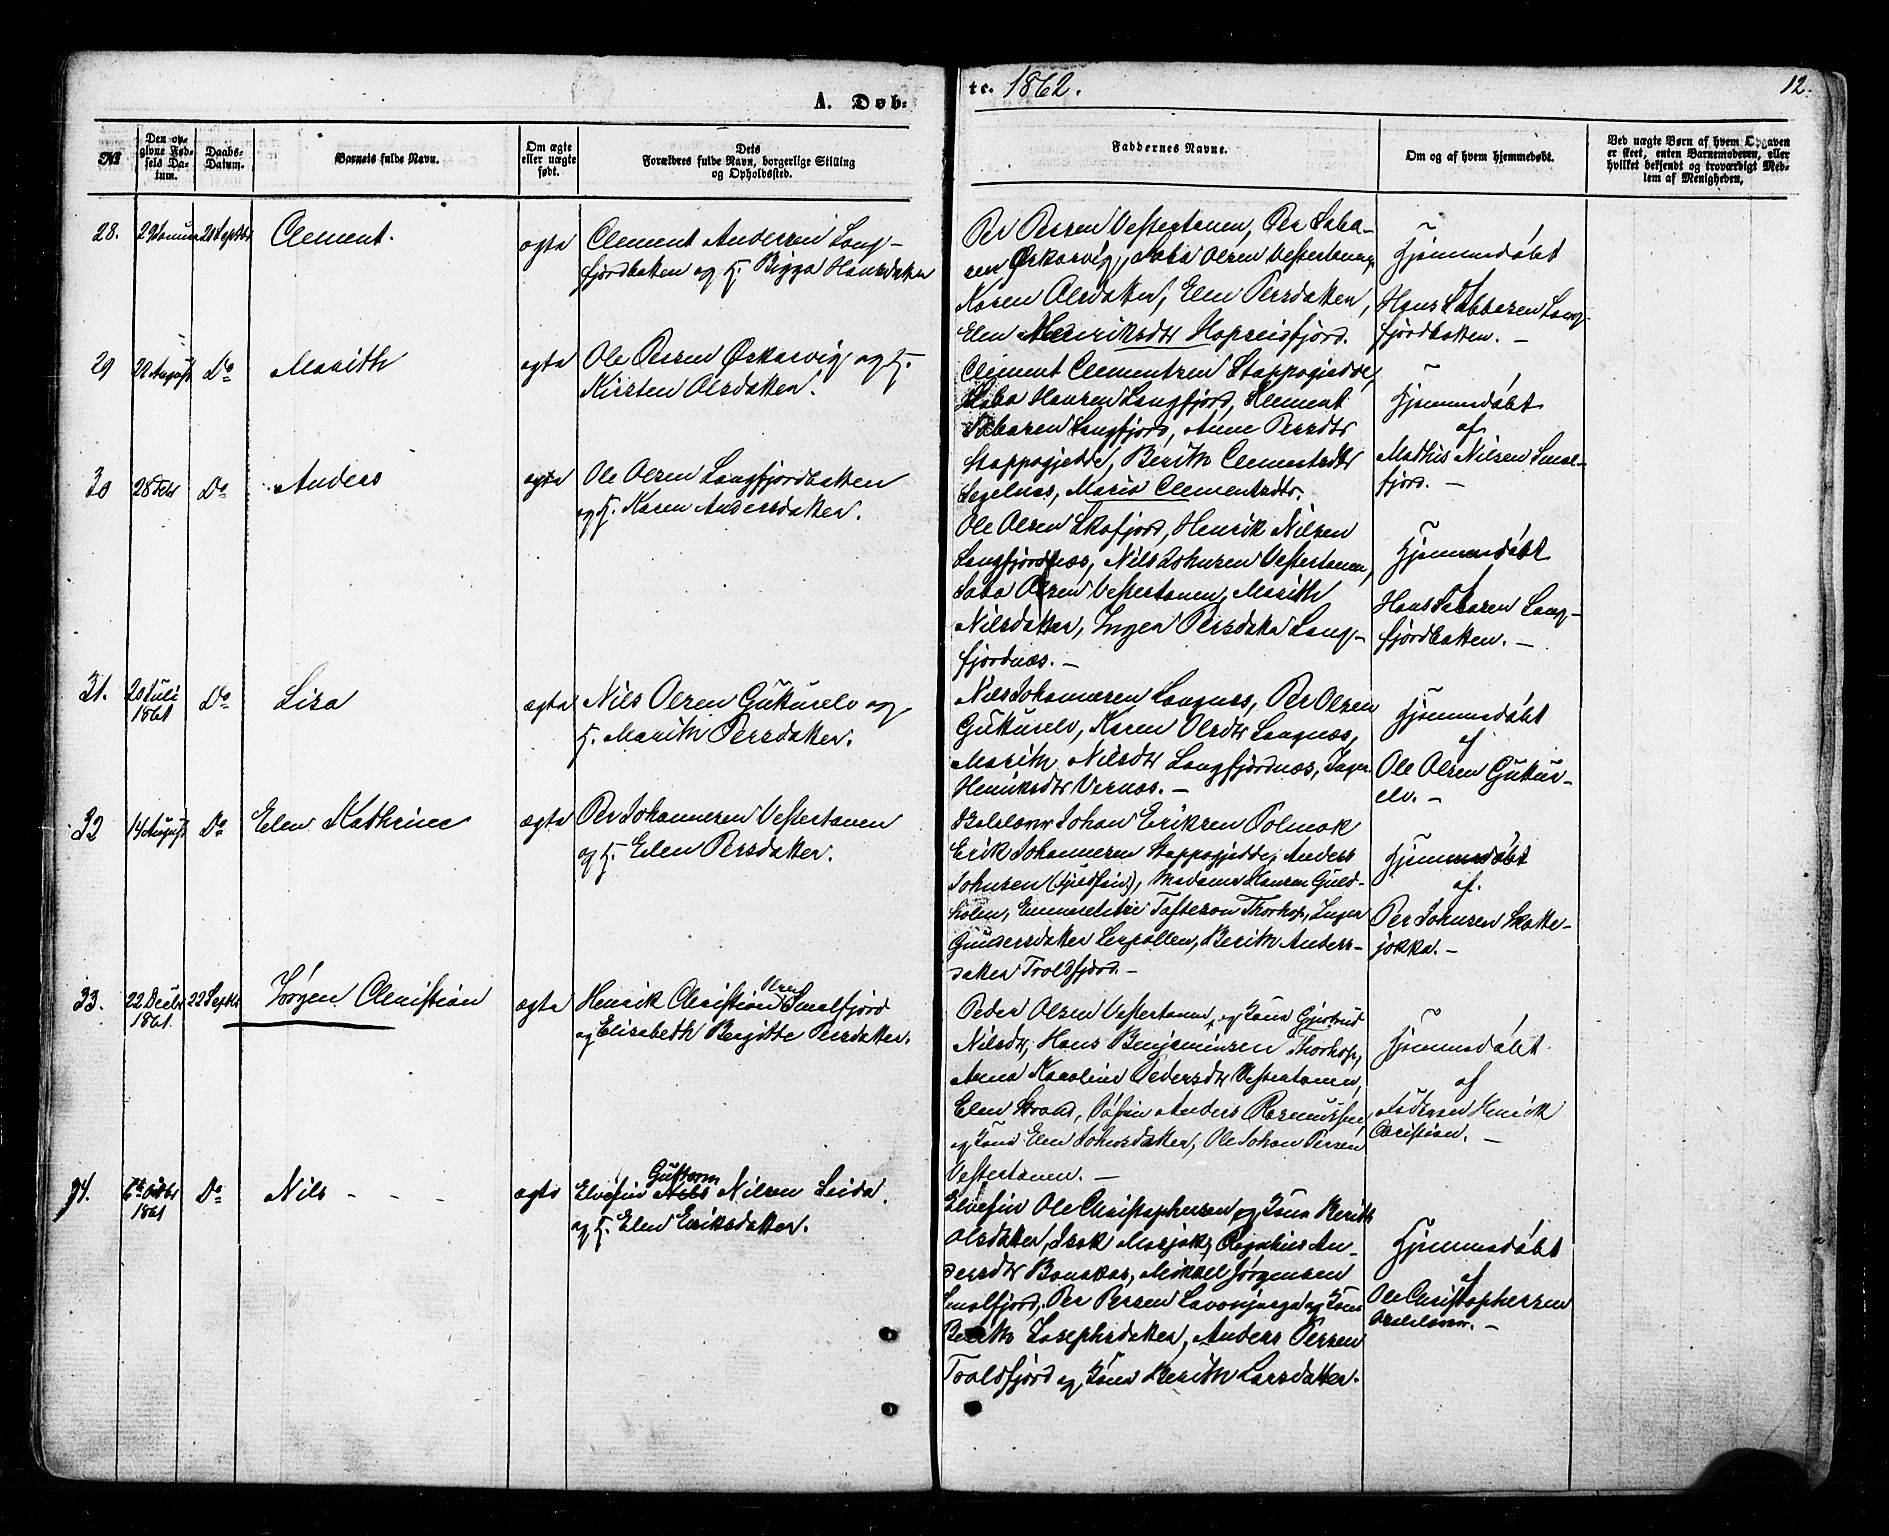 A. Døb-
te. 1862.
12.
No
Den op-
givne Fød-
sels Da-
tum.
Daabs-
Datum.
Barnets fulde Navn.
Om ægte
eller uægte
født.
Dets
Forældres fulde Navn, borgerlige Stilling
og Opholdssted.
Faddernes Navne.
Om og af hvem hjemmedøbt.
Ved uægte Børn af hvem Opgaven
er skeet, enten Barnemoderen, eller
hvilket bekjendt og troværdigt Med-
lem af Menigheden.
28.
21 Septbr
Clement.
ægte
Clement Andersen Lang-
fjordbotten og H. Bigga Hansdatter
Per Persen Vestertanen, Per Saba-
sen Ørkarvig, Saba Olsen Vestertanen
Karen Olsdatter, Elen Persdatter,
Elen Henriksdtr Hopseisfjord.
Hjemmedøbt
Hans Sabbasen Lang-
fjordbotten. –
29
21 August
Do
Marith
ægte
Ole Persen Ørkarvig og H.
Kirsten Olsdatter.
Clement Clementsen Stappogiedde,
Saba Hansen Langfjord, Clement
Sabasen Langfjord, Anne Persdtr
Stappogjedde, Berith Clementsdtr
Segelnæs, Maria Clementsdtr.
Hjemmedøbt
af
Mathis Nilsen Smal-
fjord. –
30
28 Febr
Do
Anders
ægte
Ole Olsen Langfjordbotten
og H. Karen Andersdatter.
Ole Olsen Skafjord, Henrik Nilsen
Langfjordnæs, Nils Johnsen Vestertanen,
Saba Olsen Vestertanen, Marith
Nilsdatter, Inger Persdatter Lang-
fjordnæs. –
Hjemmedøbt
Hans Sabasen Lang-
fjordbotten. –
31.
20 Juli
1861
Do
Lisa
ægte
Nils Olsen Gukkuselv og
H. Marith Persdatter.
Nils Johannesen Langnæs, Per Olsen
Gukkuselv, Karen Olsdtr Langnæs,
Marith Nilsdtr Langfjordnæs, Inger
Henriksdtr Vernæs. –
Hjemmedøbt
af
Ole Olsen Gukkus-
elv. –
32
14 August
Do
Elen Kathrine
ægte
Per Johannesen Vestertanen
og H. Elen Persdatter.
Skolelærer Johan Eriksen Polmak
Erik Johannesen Stappogjedde, Anders
Johnsen (Fjeldfin), Madame Hansen Guld-
holm, Tafteson Thorhop, Inger
Gundersdatter Leepollen, Berith Anders-
datter Troldfjord. –
Hjemmedøbt
af.
Per Johnsen Skatte-
jokka. –
33.
22 Decbr
1861.
22 Septbr
Jørgen Christian
ægte
Henrik Christian Olsen Smalfjord
og Elisabeth Bergitte Persdatter.
Peder Olsen Vestertanen og Kone Gjertrud
Nilsdtr, Hans Benjaminsen Thorhop,
Anna Karoline Pedersdtr Vestertanen,
Elen Strand, Søfin Anders Rasmussen
og Kone Elen Johnsdatter, Ole Johan Persen
Vestertanen. –
Hjemmedøbt
af
Faderen Henrik
Christian. –
34.
1861
Do
Nils - - -
ægte
Elvefin Gustavn Nilsen Seida.
og H. Elen Eriksdatter.
Elvefin Ole Christophersen og Kone Berith
Olsdatter, Isak Marjok, An-
dersdtr Bonakas, Mikkel Jørgensen
Smalfjord, Per Persen Lavonjarga og Kone
Berith Josephsdatter, Anders Persen
Troldfjord og Kone Berith Larsdatter.
Hjemmedøbt
af
Ole Christophersen
Skolelærer. –